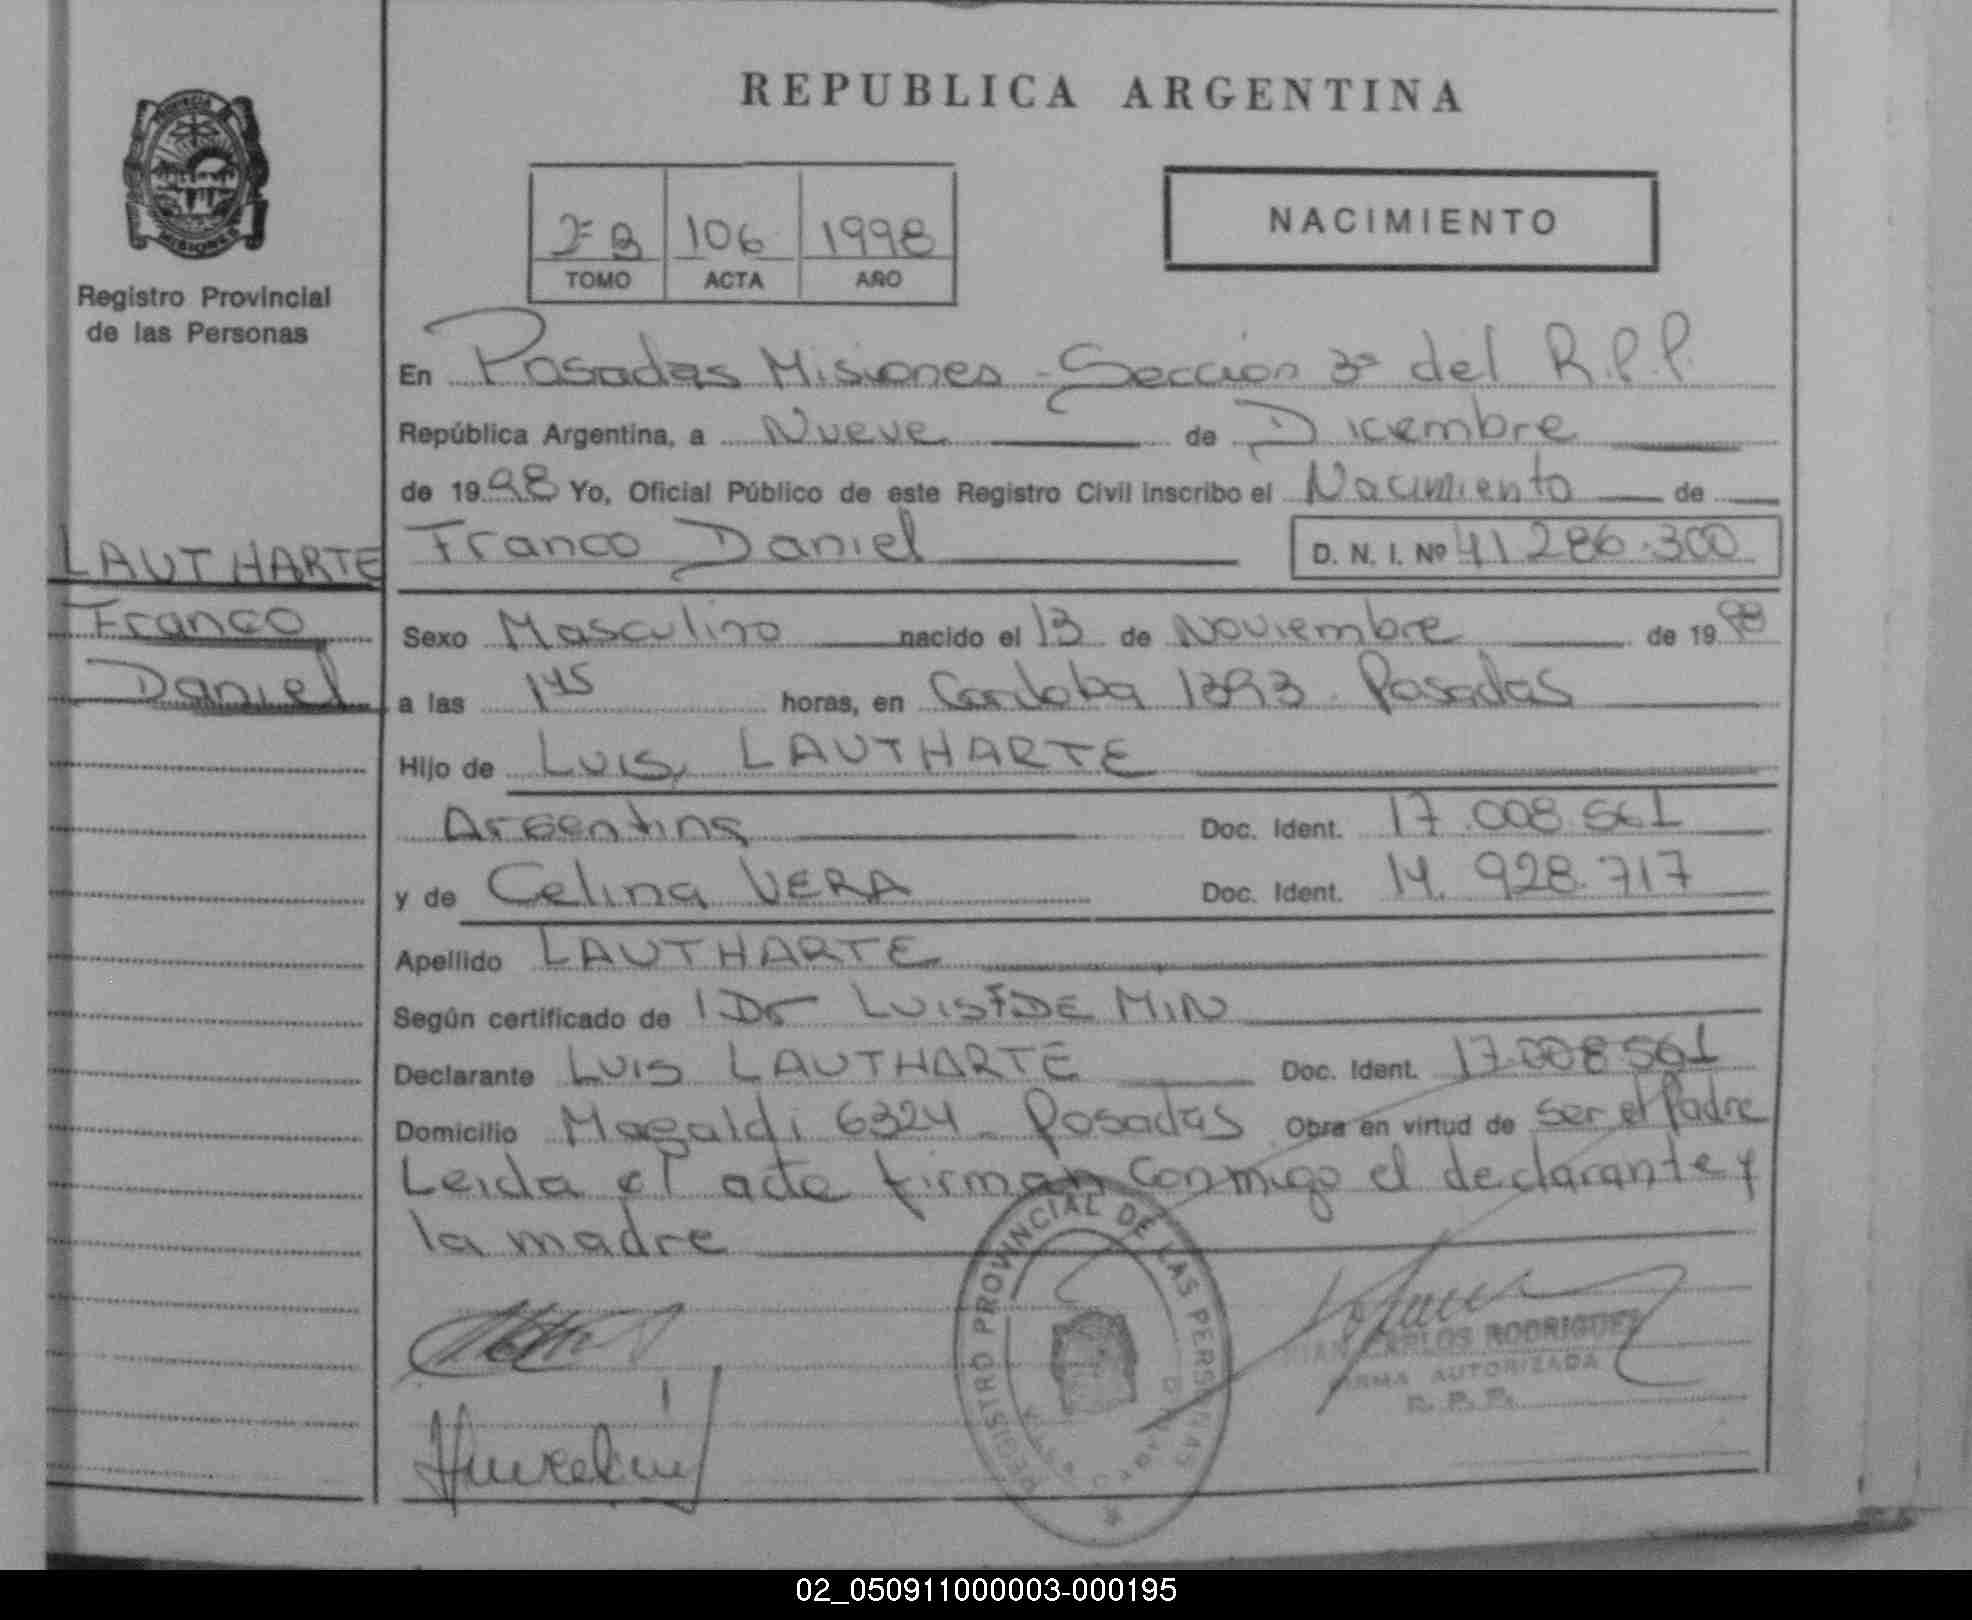 REPUBLICA ARGENTINA
PROVINCIA
MISIONES
Registro Provincial
de las Personas
2º B 106 1998
TOMO ACTA AÑO
NACIMIENTO
En Posadas Misiones - Sección 3ª del R.P.P.
República Argentina, a Nueve de Diciembre
de 1998 Yo, Oficial Público de este Registro Civil inscribo el Nacimiento de
LAUTHARTE
Franco
Daniel
Franco Daniel D. N. I. Nº 41 286.300
Sexo Masculino nacido el 13 de Noviembre de 1998
a las 1 45 horas, en Cordoba 1393 Posadas
Hijo de Luis, LAUTHARTE
Argentina Doc. Ident. 17.008 561
y de Celina VERA Doc. Ident. 14. 928.717
Apellido LAUTHARTE
Según certificado de Dr LUIS DE MIN
Declarante LUIS LAUTHARTE Doc. Ident. 17.008 561
Domicilio Magaldi 6324 - Posadas Obra en virtud de ser el Padre
Leida el acta firman conmigo el declarante y
la madre
REGISTRO PROVINCIAL DE LAS PERSONAS
JUAN CARLOS RODRIGUEZ
FIRMA AUTORIZADA
R. P. P.
02_050911000003-000195